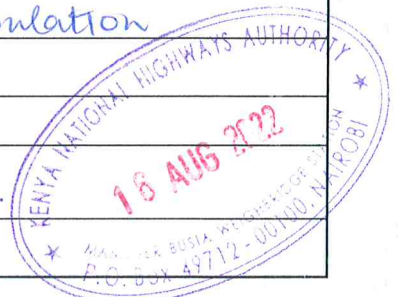 ulation
KENYA NATIONAL HIGHWAYS AUTHORITY
AUG 2022
MANAGER BUSIA WEIGHBRIDGE STATION
P.O. Box 49712 - 00100, NAIROBI